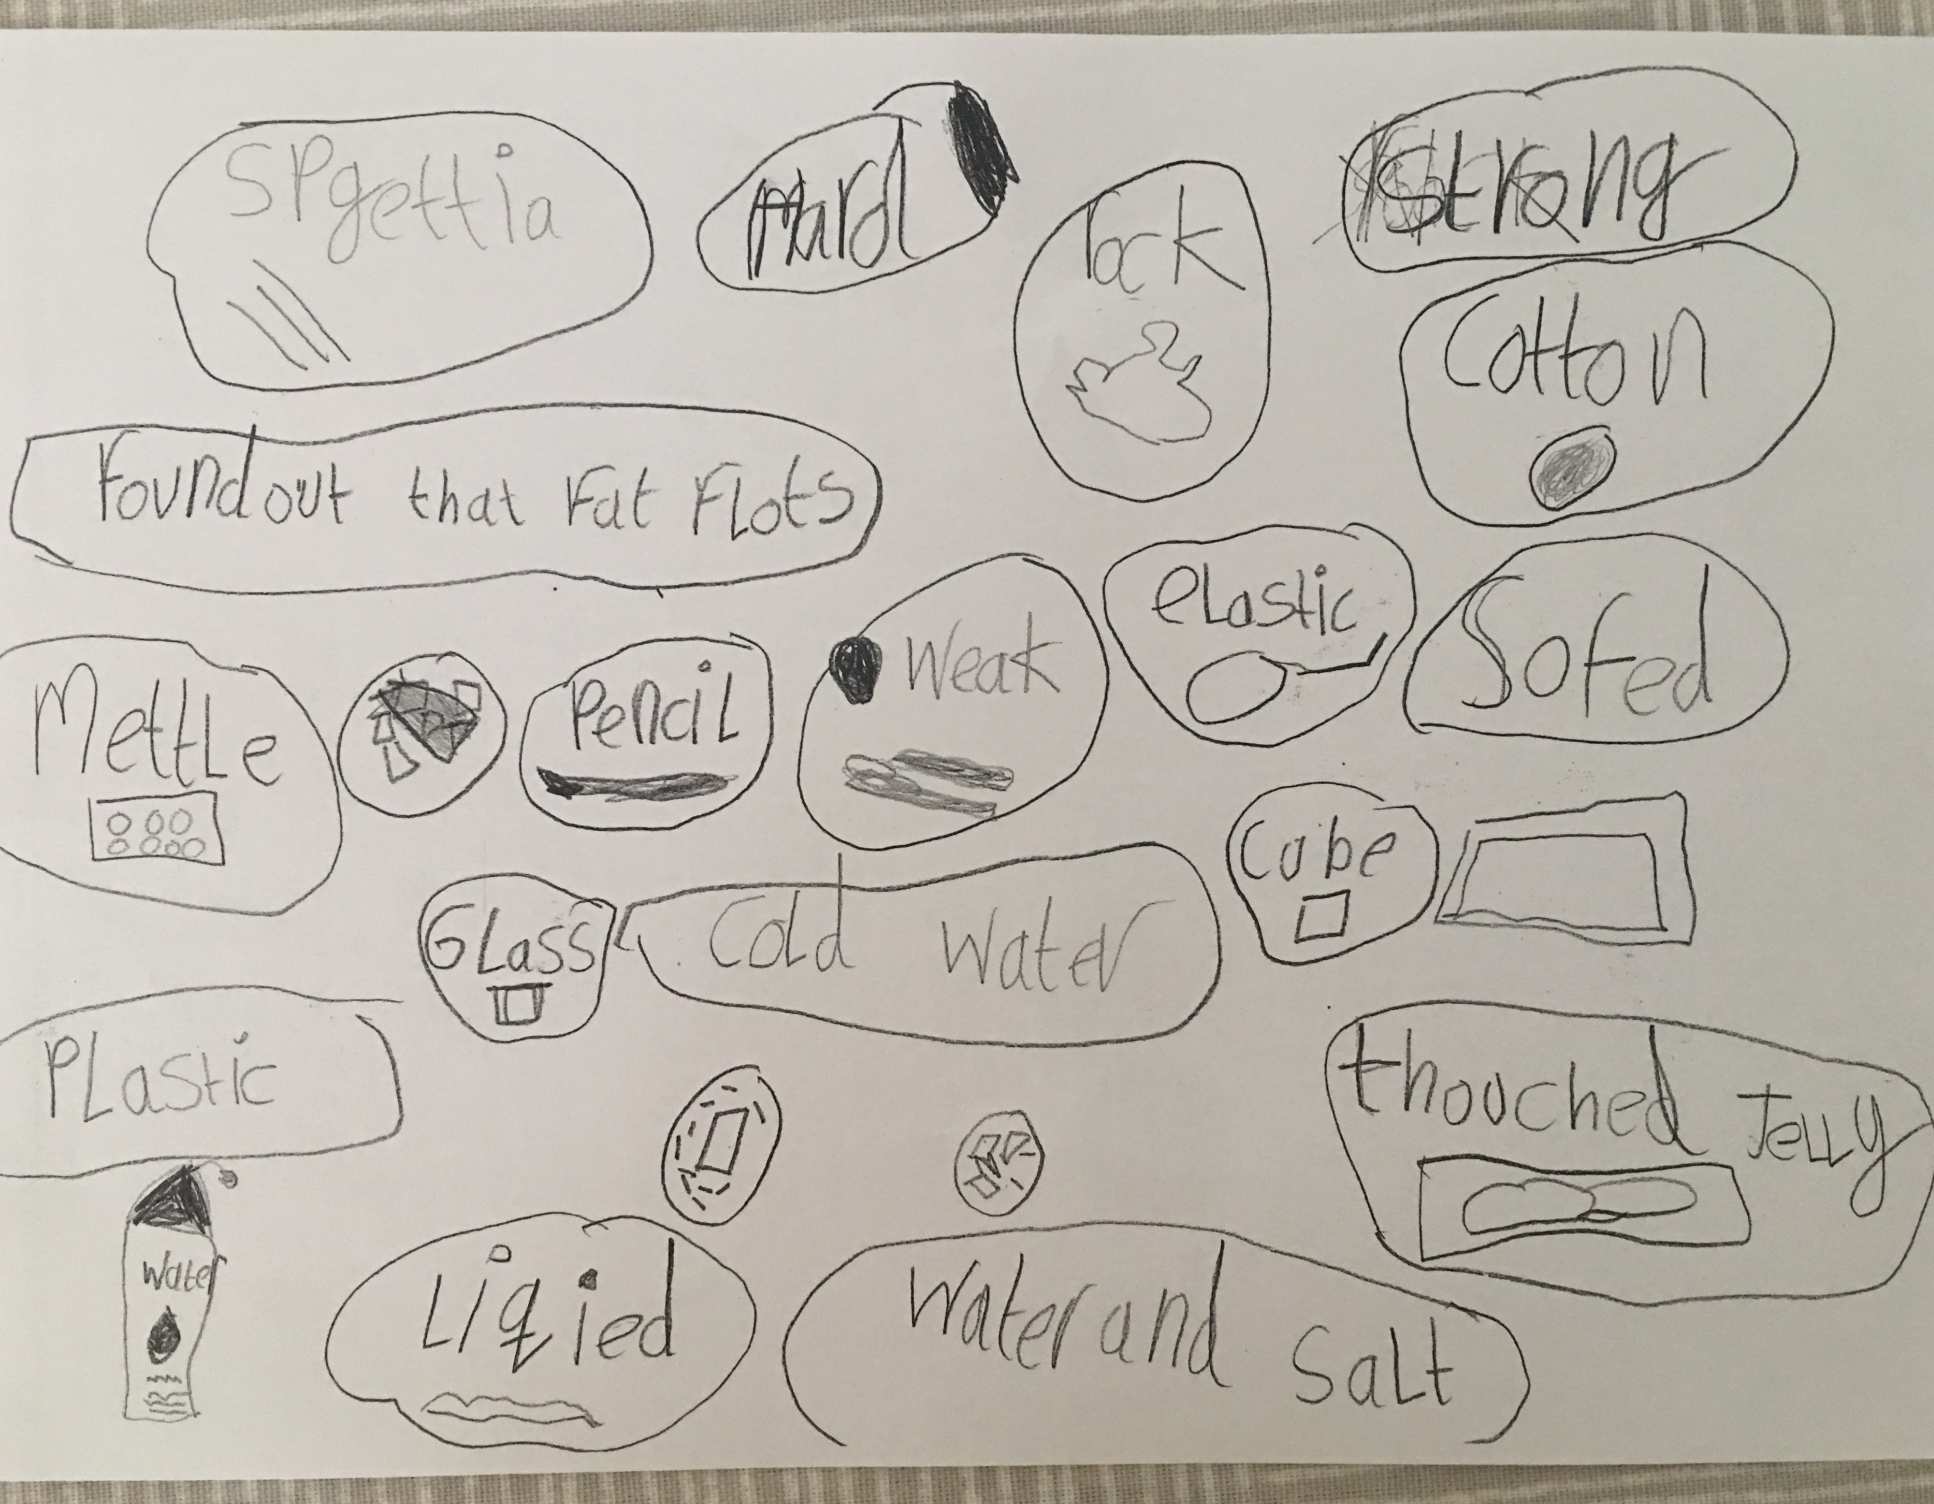 SPgettia
Hard
rock
Strong
Cotton
Found out that Fat FLots
eLastic
Sofed
Weak
MettLe
PenciL
Cube
GLass
CoLd Water
PLastic
thouched JeLLy
Water
Liqied
Water and
SaLt